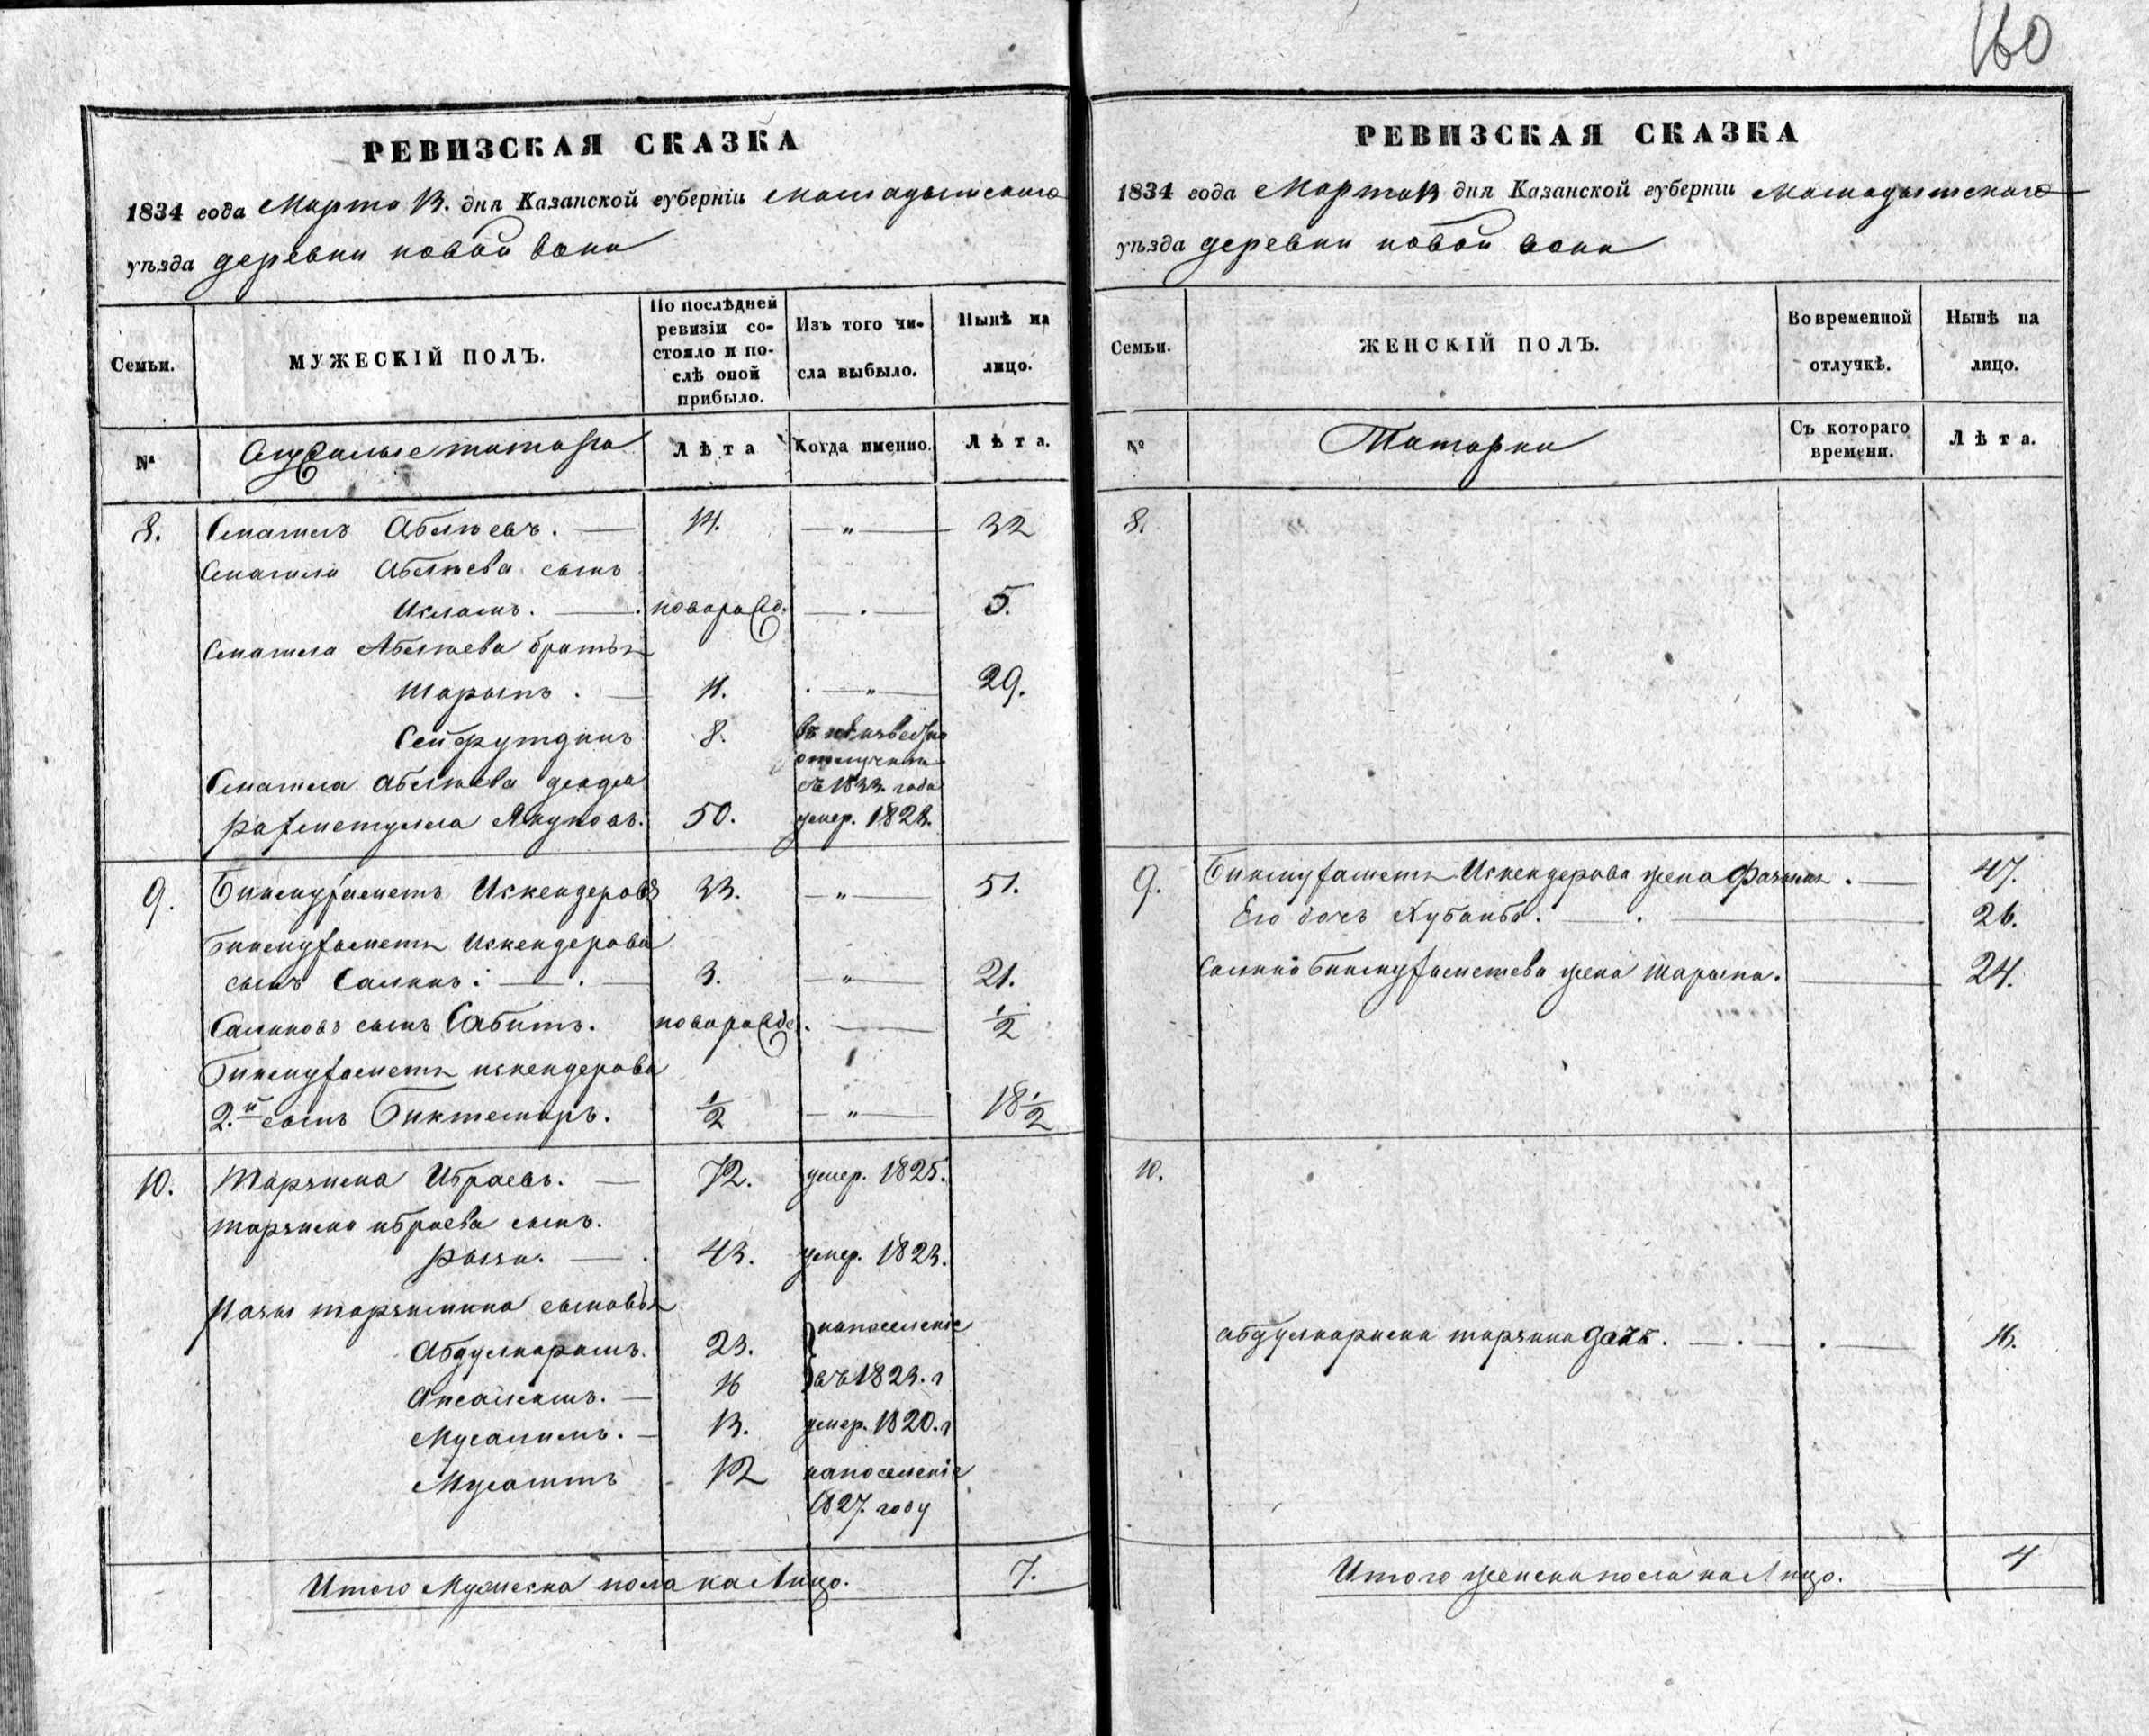 160
РЕВИЗСКАЯ СКАЗКА
1834 года Марта 13. дня Казанской губерніи Мамадышскаго
уѣзда деревни новой вони
Семьи. МУЖЕСКІЙ ПОЛЪ. По послѣдней ревизіи состояло и послѣ оной прибыло. Изъ того числа выбыло. Нынѣ на лицо.
№ Служилые татара Лѣта Когда именно. Лѣта.
8. Смагилъ Абляевъ. 14. — „ — 32
Смагила Абляева сынъ
Исламъ. новорожд. — . — 5.
Смагила Абляева братья
Шарыпъ. 11. — „ — 29.
Сейфутдинъ 8. в неизвестной отлучки съ 1833. года
Смагила Абляева дядя
Рахметулла Якуповъ. 50. умер. 1828.
9. Бикмухаметъ Искендеровъ 33. — „ — 51.
Бикмухаметя Искендерова
сынъ Салихъ. 3. — „ — 21.
Салиховъ сынъ Сабитъ. новорожде. — 1/2
Бикмухаметя искендерова
2.й сынъ Биктемиръ. 1/2 — „ — 18 1/2
10. Ибраевъ. 72. умер. 1825.
ибраева сынъ.
43. умер. 1823.
сыновья
Абдулкаримъ. 23. напоселеніе
16 въ 1823. г
13. умер. 1820. г
12 напоселеніе
1827. году
Итого Мужеска пола на Лицо. 7.
РЕВИЗСКАЯ СКАЗКА
1834 года Марта 13 дня Казанской губерніи Мамадышскаго
уѣзда деревни новой вони
Семьи. ЖЕНСКІЙ ПОЛЪ. Во временной отлучкѣ. Нынѣ на лицо.
№ Татарки Съ котораго времени. Лѣта.
8.
9. Бикмухаметя Искендерова жена . — 47.
Его дочь Хубанба. — 26.
Салиха Бикмухаметева жена Шарыпа. 24.
10.
абдулкарима дочь. — . — 16.
Итого женска пола на Лицо. 4